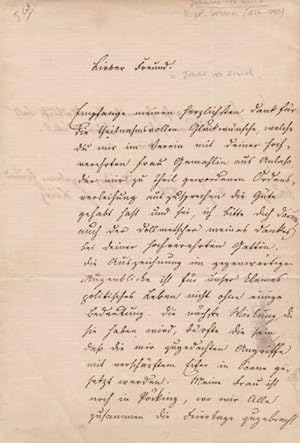 Lieber Freund!
Empfange meinen herzlichsten Dank für
die theilnahmsvollen Glückwünsche, welche
du mir im Verein mit deiner hoch-
verehrten Frau Gemahlin aus Anlass
der mir zu theil gewordenen Ordens-
verleihung auszusprechen die Güte
gehabt hast und sei, ich bitte dich
auch der Dollmetscher meines Dankes
bei deiner hochverehrten Gattin.
die Auszeichnung im gegenwärtigen
Augenblicke ist für unser kleines
politisches Leben nicht ohne einige
bedeutung. die nächste Wirkung, die
sie haben wird, dürfte die sein
daß die mir zugedachten Angriffe
mit verschärftem Eifer in Scene ge-
setzt werden. Meine Frau ist
noch in wo wir Alle
zusammen die Feiertage zugebracht